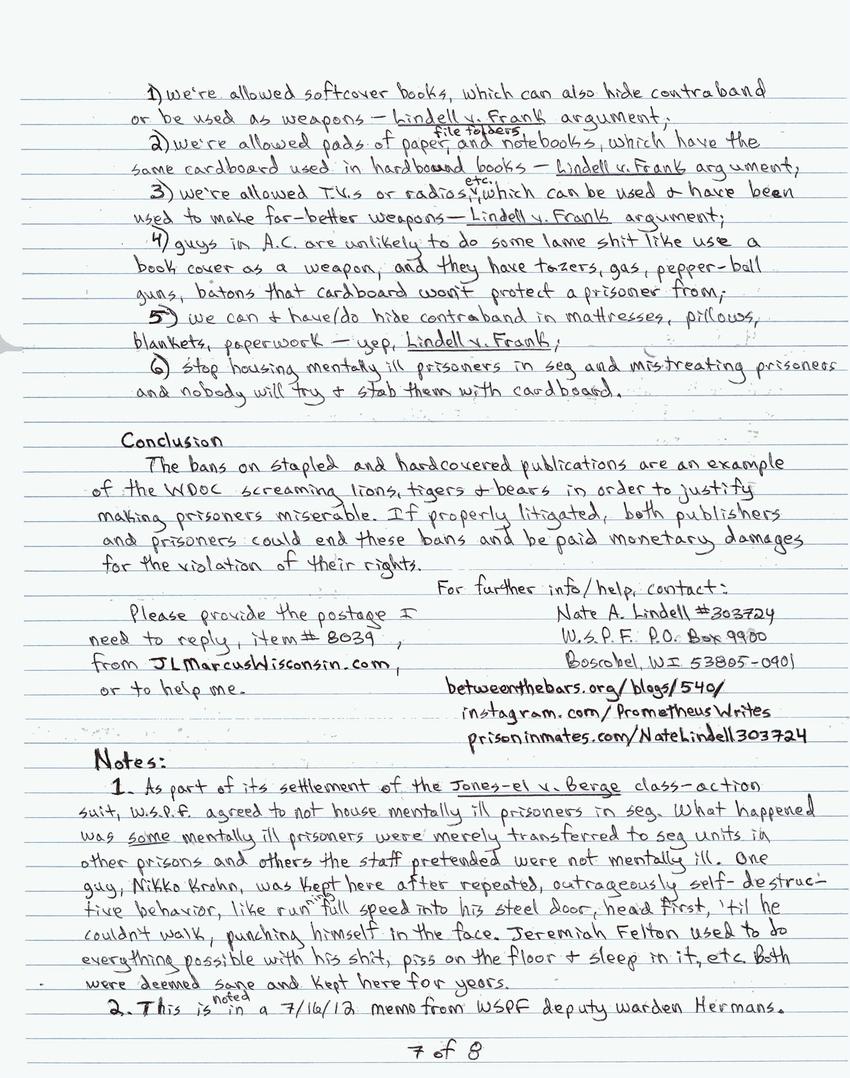 1) we're allowed softcover books, which can also hide contraband
or be used as weapons — Lindell v. Frank argument;
2) we're allowed pads of paper, file folders and notebooks, which have the
same cardboard used in hardbound books — Lindell v. Frank argument;
3) we're allowed T.V.s or radios, etc. which can be used & have been
used to make far-better weapons — Lindell v. Frank argument;
4) guys in A.C. are unlikely to do some lame shit like use a
book cover as a weapon, and they have tazers, gas, pepper-ball
guns, batons that cardboard won't protect a prisoner from;
5) we can & have/do hide contraband in mattresses, pillows,
blankets, paperwork — yep, Lindell v. Frank;
6) stop housing mentally ill prisoners in seg and mistreating prisoners
and nobody will try & stab them with cardboard.
Conclusion
The bans on stapled and hardcovered publications are an example
of the WDOC screaming lions, tigers & bears in order to justify
making prisoners miserable. If properly litigated, both publishers
and prisoners could end these bans and be paid monetary damages
for the violation of their rights.
For further info/help, contact:
Please provide the postage I
need to reply, item# 8039,
from JLMarcusWisconsin.com,
or to help me.
Nate A. Lindell #303724
W.S.P.F. P.O. Box 9900
Boscobel, WI 53805-0901
betweenthebars.org/blogs/540/
instagram.com/PrometheusWrites
prisoninmates.com/NateLindell303724
Notes:
1. As part of its settlement of the Jones-el v. Berge class-action
suit, W.S.P.F. agreed to not house mentally ill prisoners in seg. What happened
was some mentally ill prisoners were merely transferred to seg units in
other prisons and others the staff pretended were not mentally ill. One
guy, Nikko Krohn, was kept here after repeated, outrageously self-destruc-
tive behavior, like running full speed into his steel door, head first, 'til he
couldn't walk, punching himself in the face. Jeremiah Felton used to do
everything possible with his shit, piss on the floor & sleep in it, etc. Both
were deemed sane and kept here for years.
2. This is noted in a 7/16/12 memo from WSPF deputy warden Hermans.
7 of 8